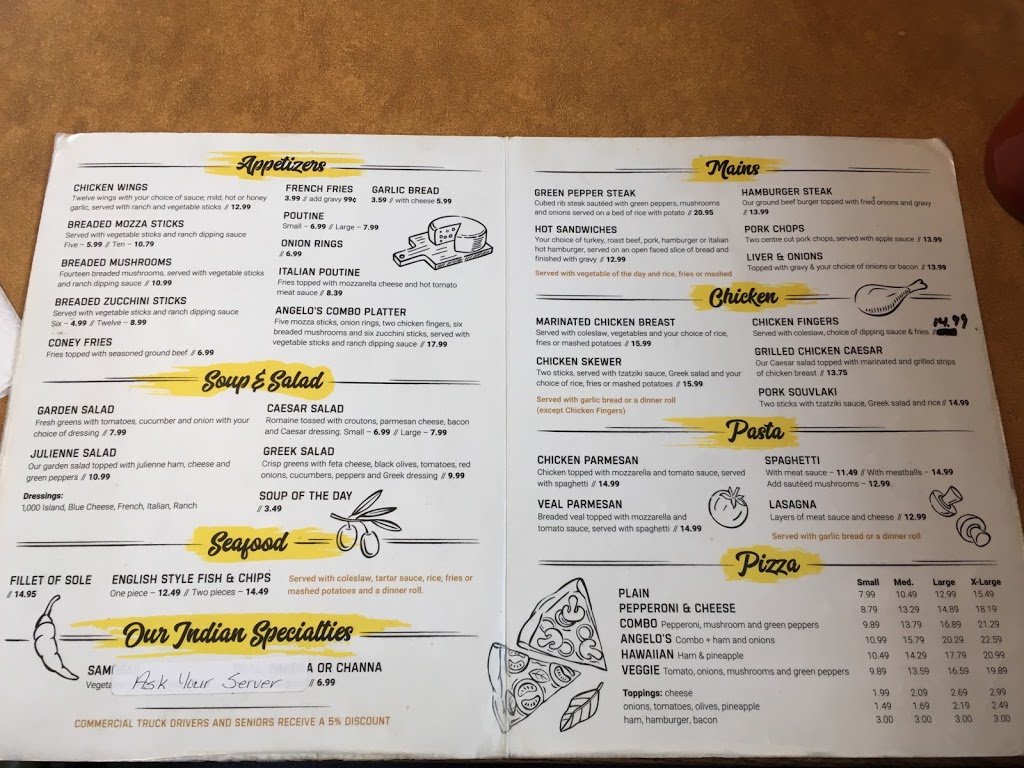 Appetizers
CHICKEN WINGS
Twelve wings with your choice of sauce; mild, hot or honey
garlic, served with ranch and vegetable sticks // 12.99
BREADED MOZZA STICKS
Served with vegetable sticks and ranch dipping sauce
Five – 5.99 // Ten – 10.79
BREADED MUSHROOMS
Fourteen breaded mushrooms, served with vegetable sticks
and ranch dipping sauce // 10.99
BREADED ZUCCHINI STICKS
Served with vegetable sticks and ranch dipping sauce
Six – 4.99 // Twelve – 8.99
CONEY FRIES
Fries topped with seasoned ground beef // 6.99
FRENCH FRIES
3.99 // add gravy 99¢
GARLIC BREAD
3.59 // with cheese 5.99
POUTINE
Small – 6.99 // Large – 7.99
ONION RINGS
// 6.99
ITALIAN POUTINE
Fries topped with mozzarella cheese and hot tomato
meat sauce // 8.39
ANGELO'S COMBO PLATTER
Five mozza sticks, onion rings, two chicken fingers, six
breaded mushrooms and six zucchini sticks, served with
vegetable sticks and ranch dipping sauce // 17.99
Soup & Salad
GARDEN SALAD
Fresh greens with tomatoes, cucumber and onion with your
choice of dressing // 7.99
JULIENNE SALAD
Our garden salad topped with julienne ham, cheese and
green peppers // 10.99
Dressings:
1,000 Island, Blue Cheese, French, Italian, Ranch
CAESAR SALAD
Romaine tossed with croutons, parmesan cheese, bacon
and Caesar dressing. Small – 6.99 // Large – 7.99
GREEK SALAD
Crisp greens with feta cheese, black olives, tomatoes, red
onions, cucumbers, peppers and Greek dressing // 9.99
SOUP OF THE DAY
// 3.49
Seafood
FILLET OF SOLE
// 14.95
ENGLISH STYLE FISH & CHIPS
One piece – 12.49 // Two pieces – 14.49
Served with coleslaw, tartar sauce, rice, fries or
mashed potatoes and a dinner roll.
Our Indian Specialties
A OR CHANNA
Ask Your Server
// 6.99
COMMERCIAL TRUCK DRIVERS AND SENIORS RECEIVE A 5% DISCOUNT
Mains
GREEN PEPPER STEAK
Cubed rib steak sautéed with green peppers, mushrooms
and onions served on a bed of rice with potato // 20.95
HOT SANDWICHES
Your choice of turkey, roast beef, pork, hamburger or Italian
hot hamburger, served on an open faced slice of bread and
finished with gravy // 12.99
Served with vegetable of the day and rice, fries or mashed
HAMBURGER STEAK
Our ground beef burger topped with fried onions and gravy
// 13.99
PORK CHOPS
Two centre cut pork chops, served with apple sauce // 13.99
LIVER & ONIONS
Topped with gravy & your choice of onions or bacon // 13.99
Chicken
MARINATED CHICKEN BREAST
Served with coleslaw, vegetables and your choice of rice,
fries or mashed potatoes // 15.99
CHICKEN SKEWER
Two sticks, served with tzatziki sauce, Greek salad and your
choice of rice, fries or mashed potatoes // 15.99
Served with garlic bread or a dinner roll
(except Chicken Fingers)
CHICKEN FINGERS
Served with coleslaw, choice of dipping sauce & fries // 14.99
GRILLED CHICKEN CAESAR
Our Caesar salad topped with marinated and grilled strips
of chicken breast // 13.75
PORK SOUVLAKI
Two sticks with tzatziki sauce, Greek salad and rice // 14.99
Pasta
CHICKEN PARMESAN
Chicken topped with mozzarella and tomato sauce, served
with spaghetti // 14.99
VEAL PARMESAN
Breaded veal topped with mozzarella and
tomato sauce, served with spaghetti // 14.99
SPAGHETTI
With meat sauce – 11.49 // With meatballs – 14.99
Add sautéed mushrooms – 12.99
LASAGNA
Layers of meat sauce and cheese // 12.99
Served with garlic bread or a dinner roll
Pizza
Small Med. Large X-Large
PLAIN 7.99 10.49 12.99 15.49
PEPPERONI & CHEESE 8.79 13.29 14.89 18.19
COMBO Pepperoni, mushroom and green peppers 9.89 13.79 16.89 21.29
ANGELO'S Combo + ham and onions 10.99 15.79 20.29 22.59
HAWAIIAN Ham & pineapple 10.49 14.29 17.79 20.99
VEGGIE Tomato, onions, mushrooms and green peppers 9.89 13.59 16.59 19.89
Toppings: cheese 1.99 2.09 2.69 2.99
onions, tomatoes, olives, pineapple 1.49 1.69 2.19 2.49
ham, hamburger, bacon 3.00 3.00 3.00 3.00